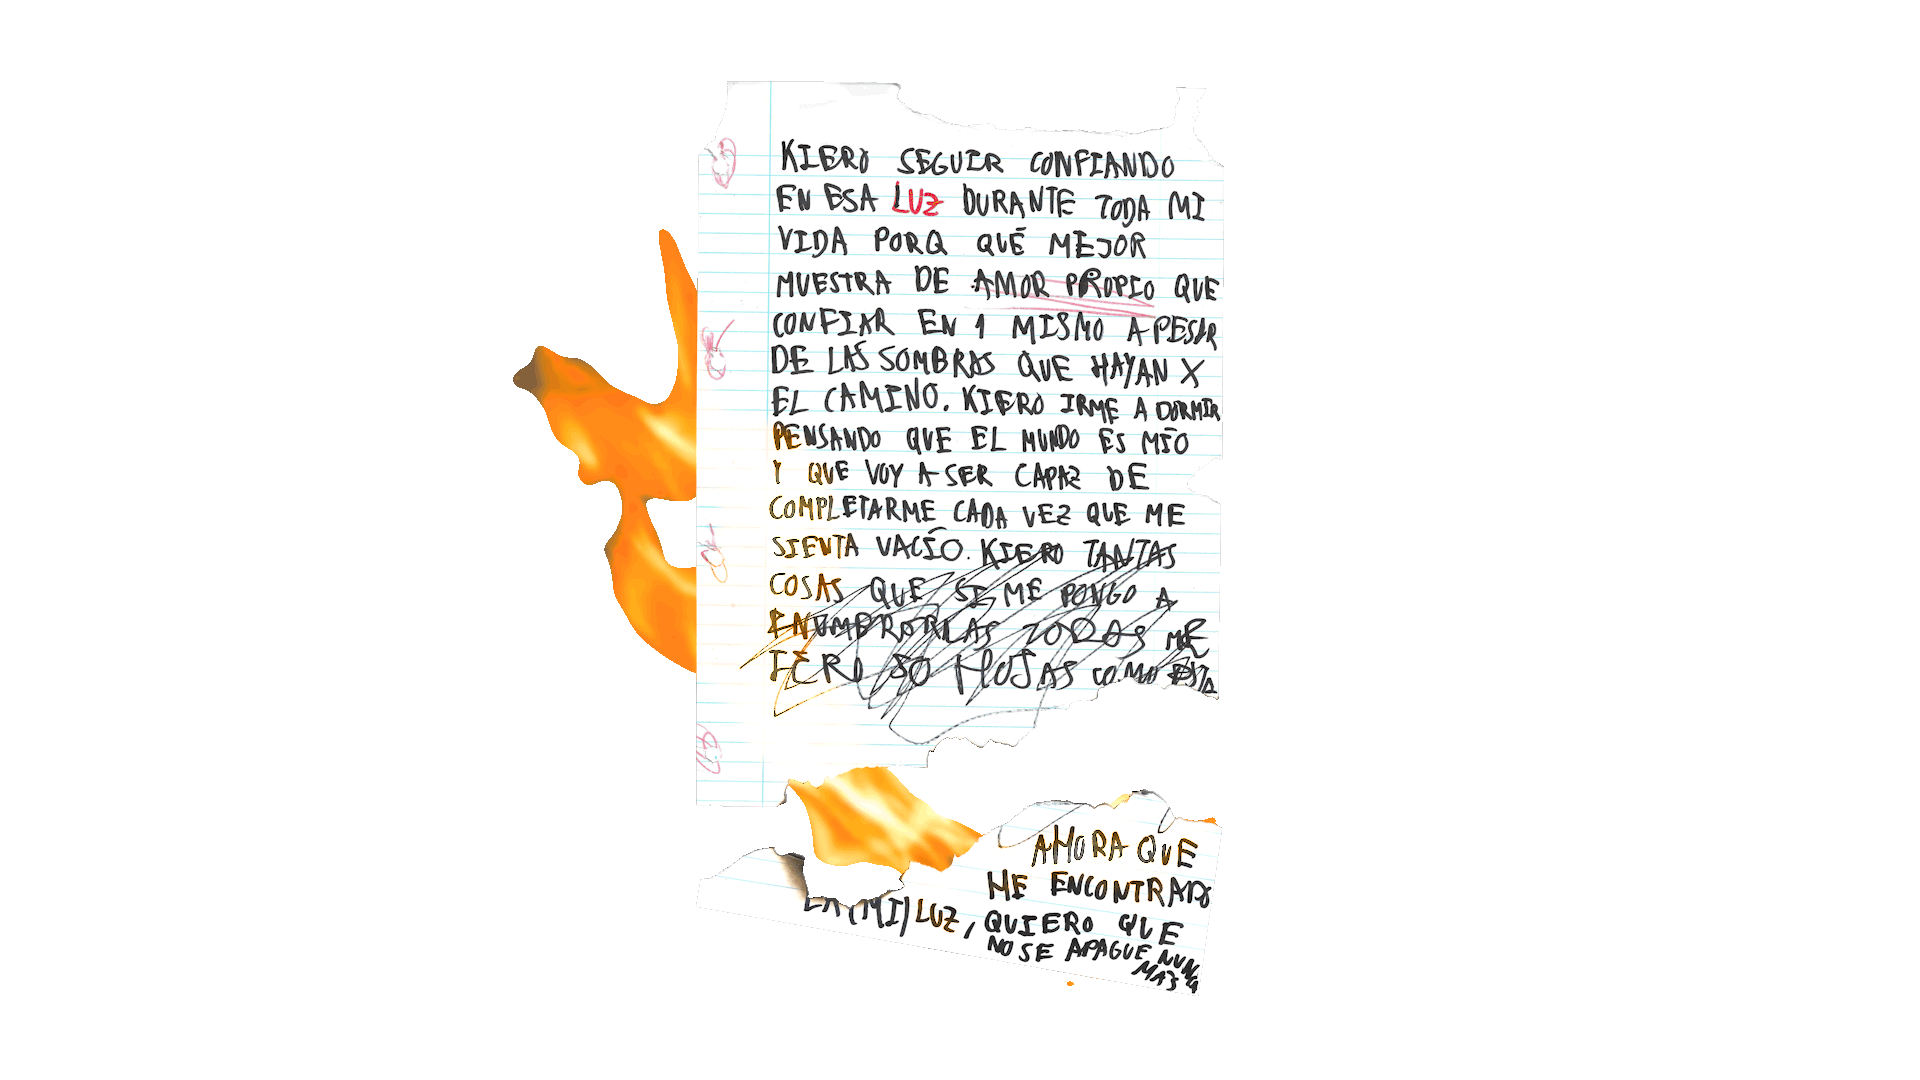 KIERO SEGUIR CONFIANDO
EN ESA LUZ DURANTE TODA MI
VIDA PORQ QUÉ MEJOR
MUESTRA DE AMOR PROPIO QUE
CONFIAR EN 1 MISMO A PESAR
DE LAS SOMBRAS QUE HAYAN X
EL CAMINO. KIERO IRME A DORMIR
PENSANDO QUE EL MUNDO ES MÍO
Y QUE VOY A SER CAPAZ DE
COMPLETARME CADA VEZ QUE ME
SIENTA VACÍO. KIERO TANTAS
COSAS QUE SI ME PONGO A
ENUMERARLAS TODAS ME
TERO 50 HOJAS COMO ESTA
AHORA QUE
HE ENCONTRADO
LA (MI) LUZ, QUIERO QUE
NO SE APAGUE NUNCA
MAS